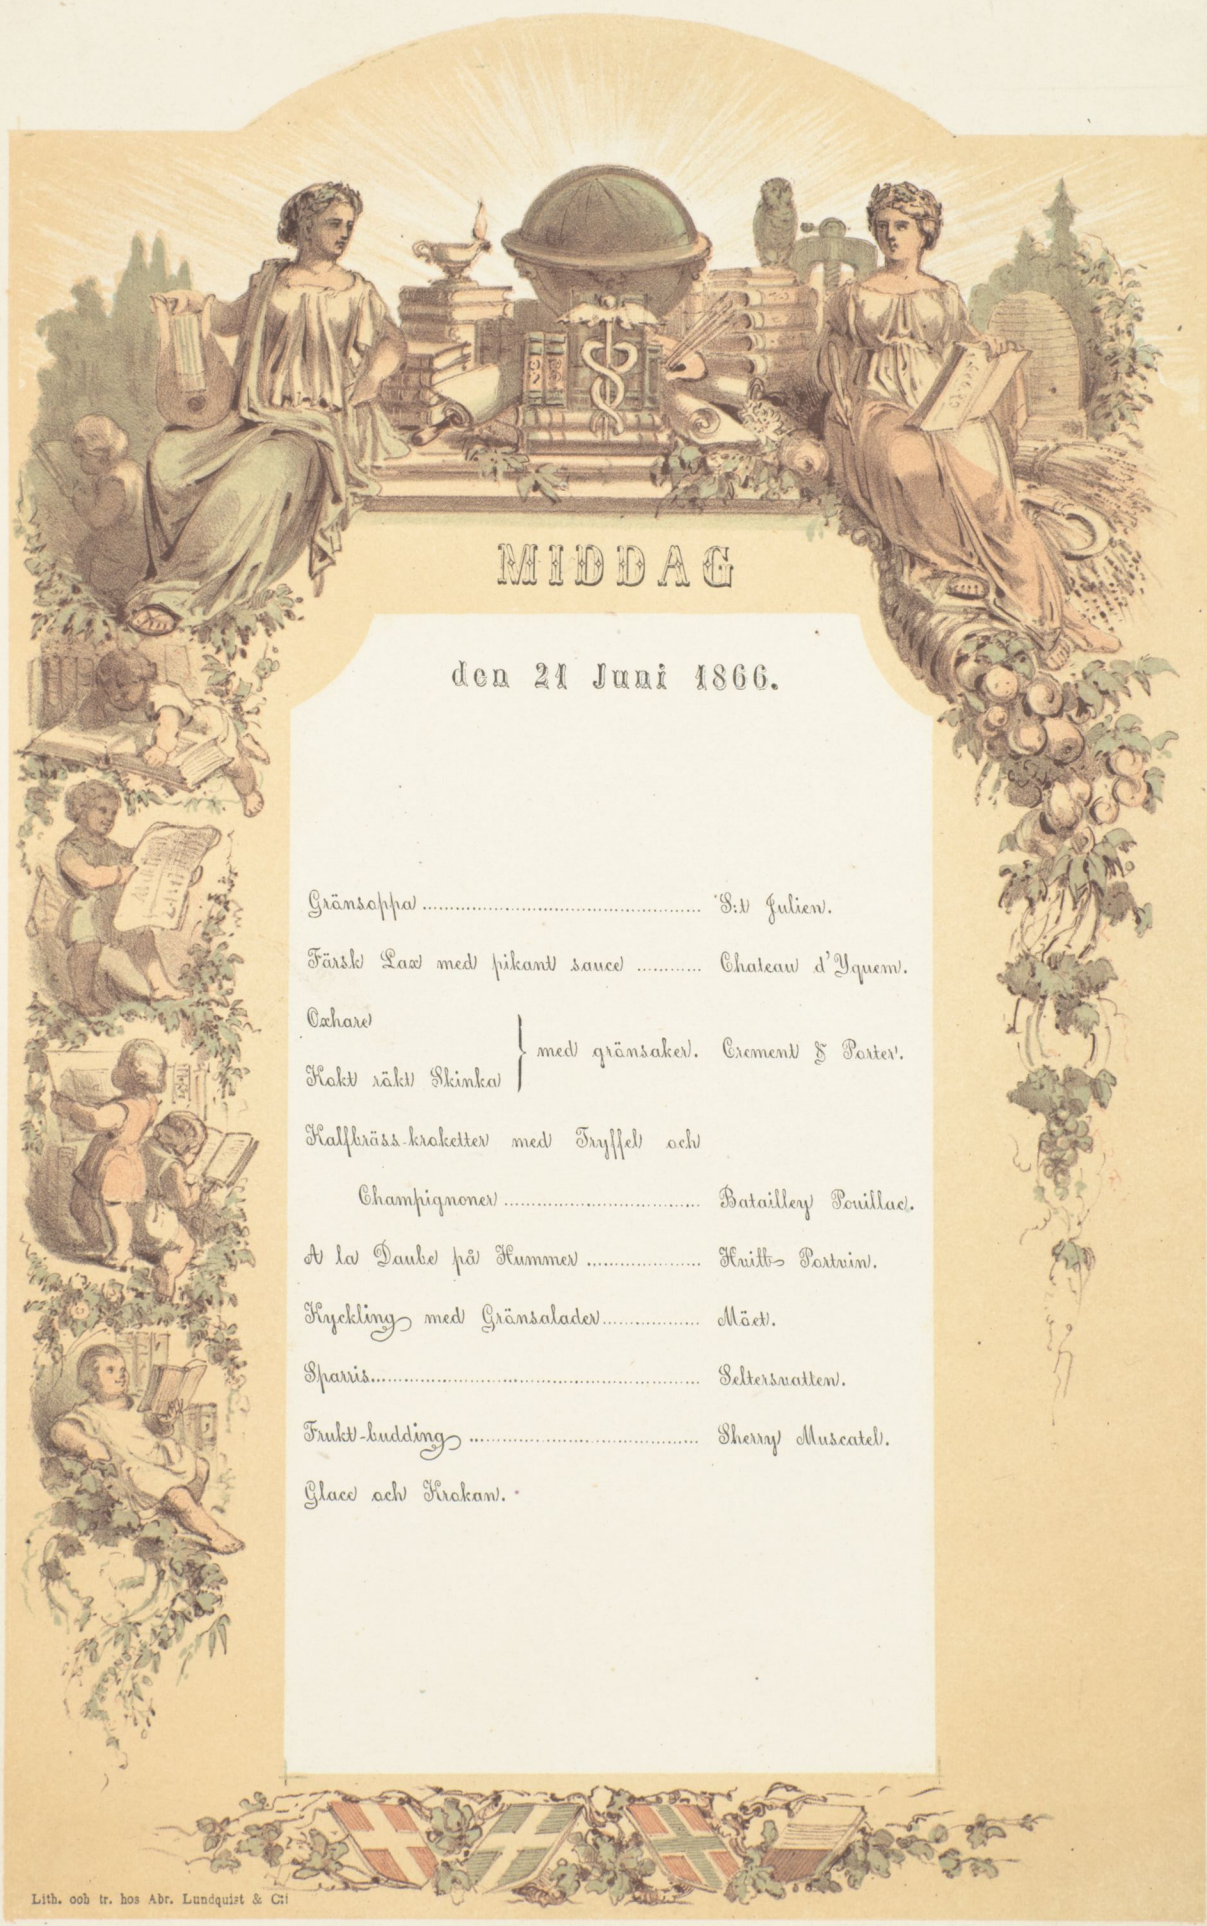 MIDDAG
den 21 Juni 1866.
Grönsoppa ........................ S:t Julien.
Färsk Lax med pikant sauce ............ Chateau d'Yquem.
Oxhare
} med grönsaker. Crement & Porter.
Kokt rökt Skinka
Kalfbräss-kroketter med Tryffel och
Champignoner ........................ Batailley Pouillac.
A la Daube på Hummer ............ Hvitt Portvin.
Kyckling med Grönsalader ............ Möet.
Sparris ........................ Seltersvatten.
Frukt-budding ........................ Sherry Muscatel.
Glace och Krokan.
Lith. och tr. hos Abr. Lundquist & C:i